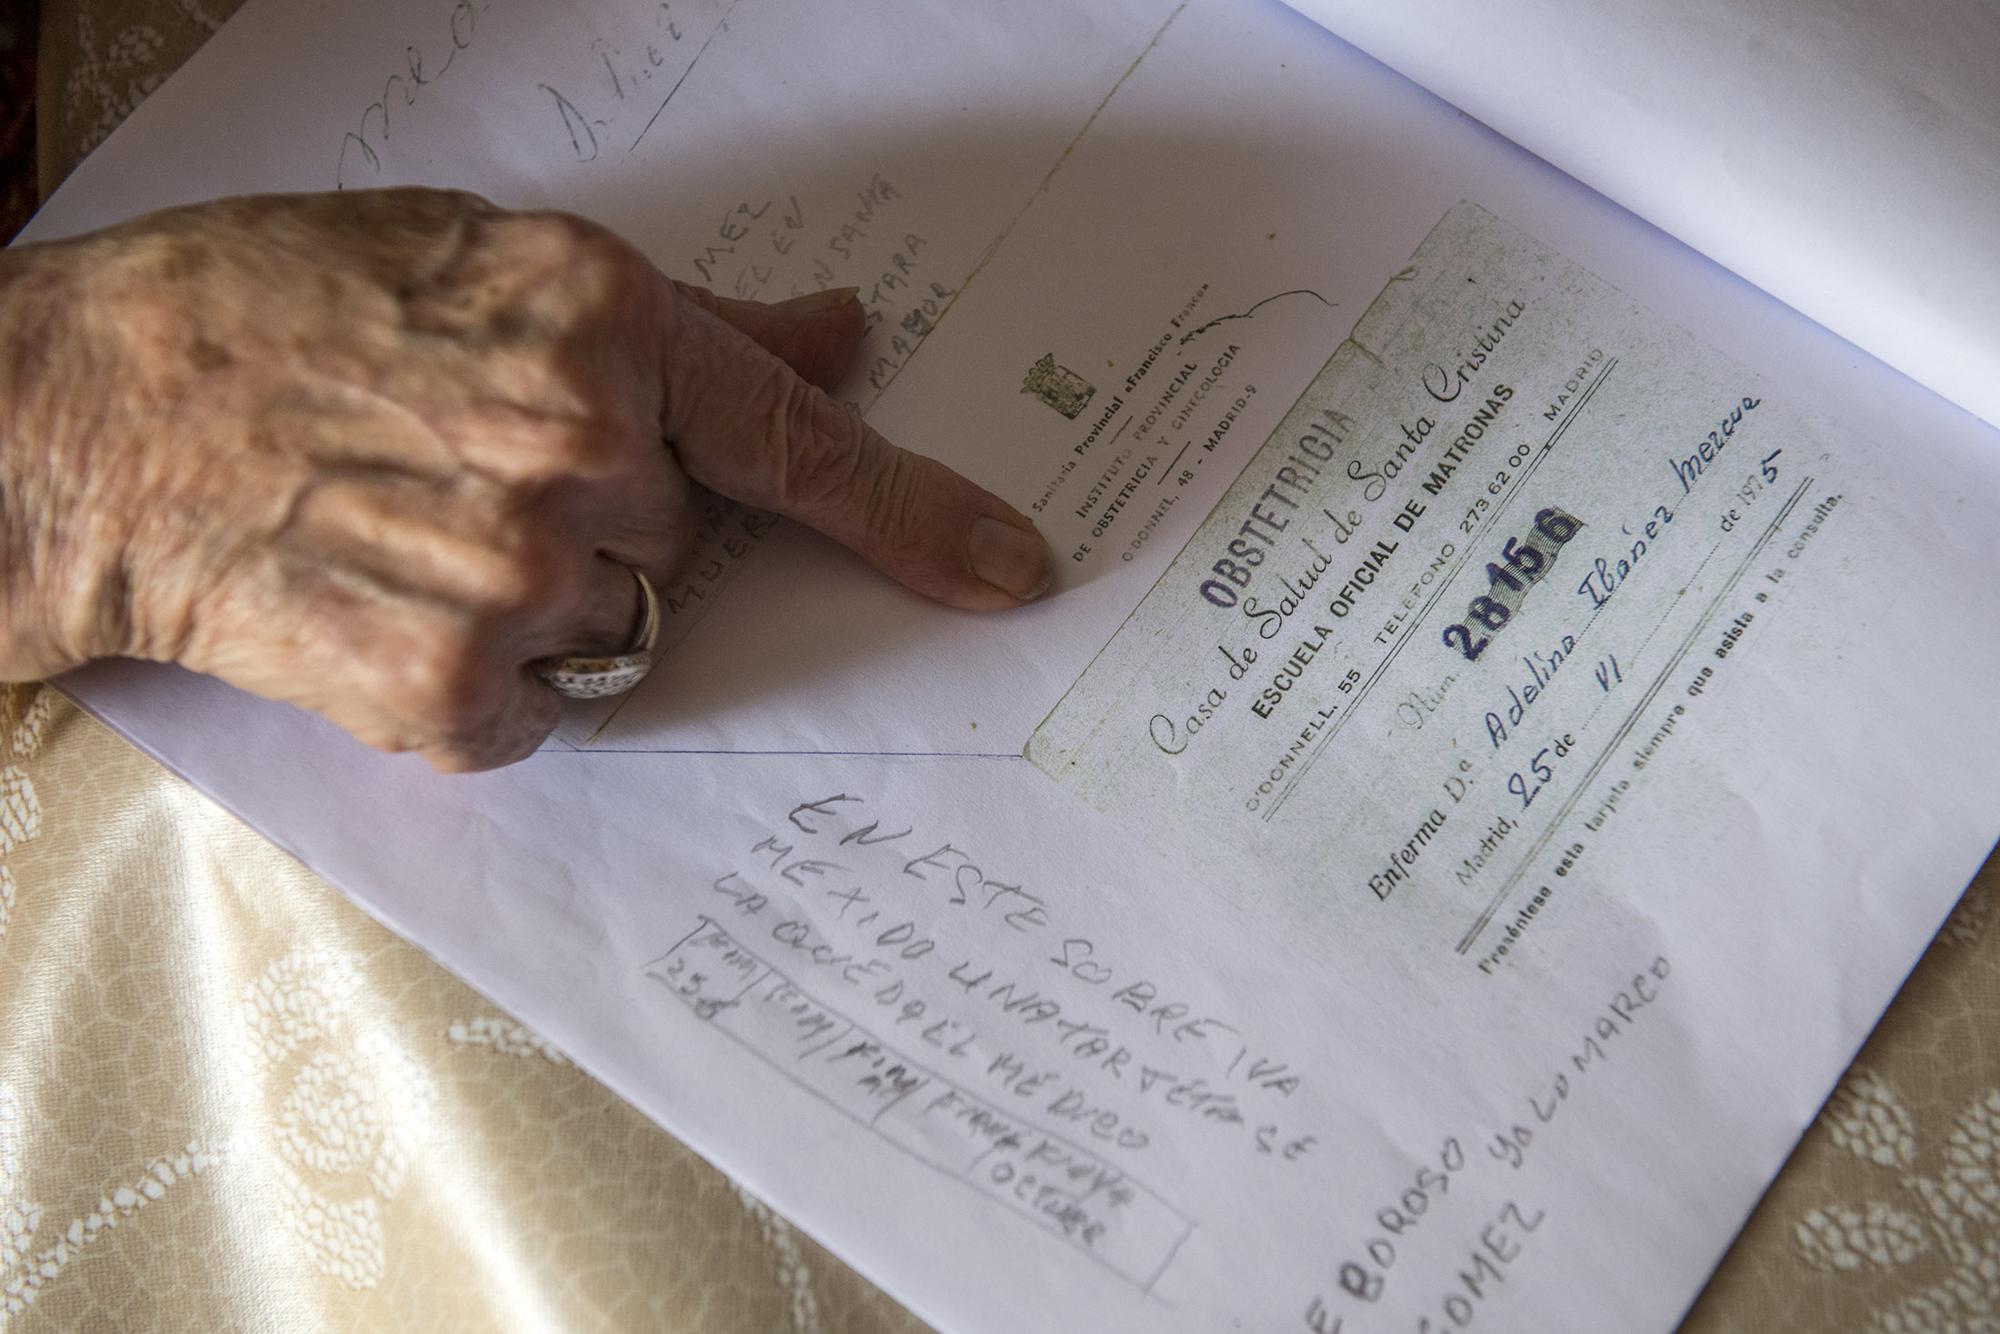 D.
MEZ
EL EN
EN SANTA
ESTARA
MAYOR
MUER
Sanitaria Provincial «Francisco Franco»
INSTITUTO PROVINCIAL
DE OBSTETRICIA Y GINECOLOGIA
O'DONNEL, 48 - MADRID-9
OBSTETRICIA
Casa de Salud de Santa Cristina
ESCUELA OFICIAL DE MATRONAS
O'DONNELL, 55 TELEFONO 273 62 00 MADRID
Núm. 28156
Enferma D.ª Adelina Ibáñez Mezcue
Madrid, 25 de VI de 1975
Preséntese esta tarjeta siempre que asista a la consulta.
EN ESTE SOBRE IVA
MEXIDO UNA TARJETA SE
LA QUEDO EL MEDICO
258
OCTUBRE
E BOROSO YO LO MARCO
GOMEZ